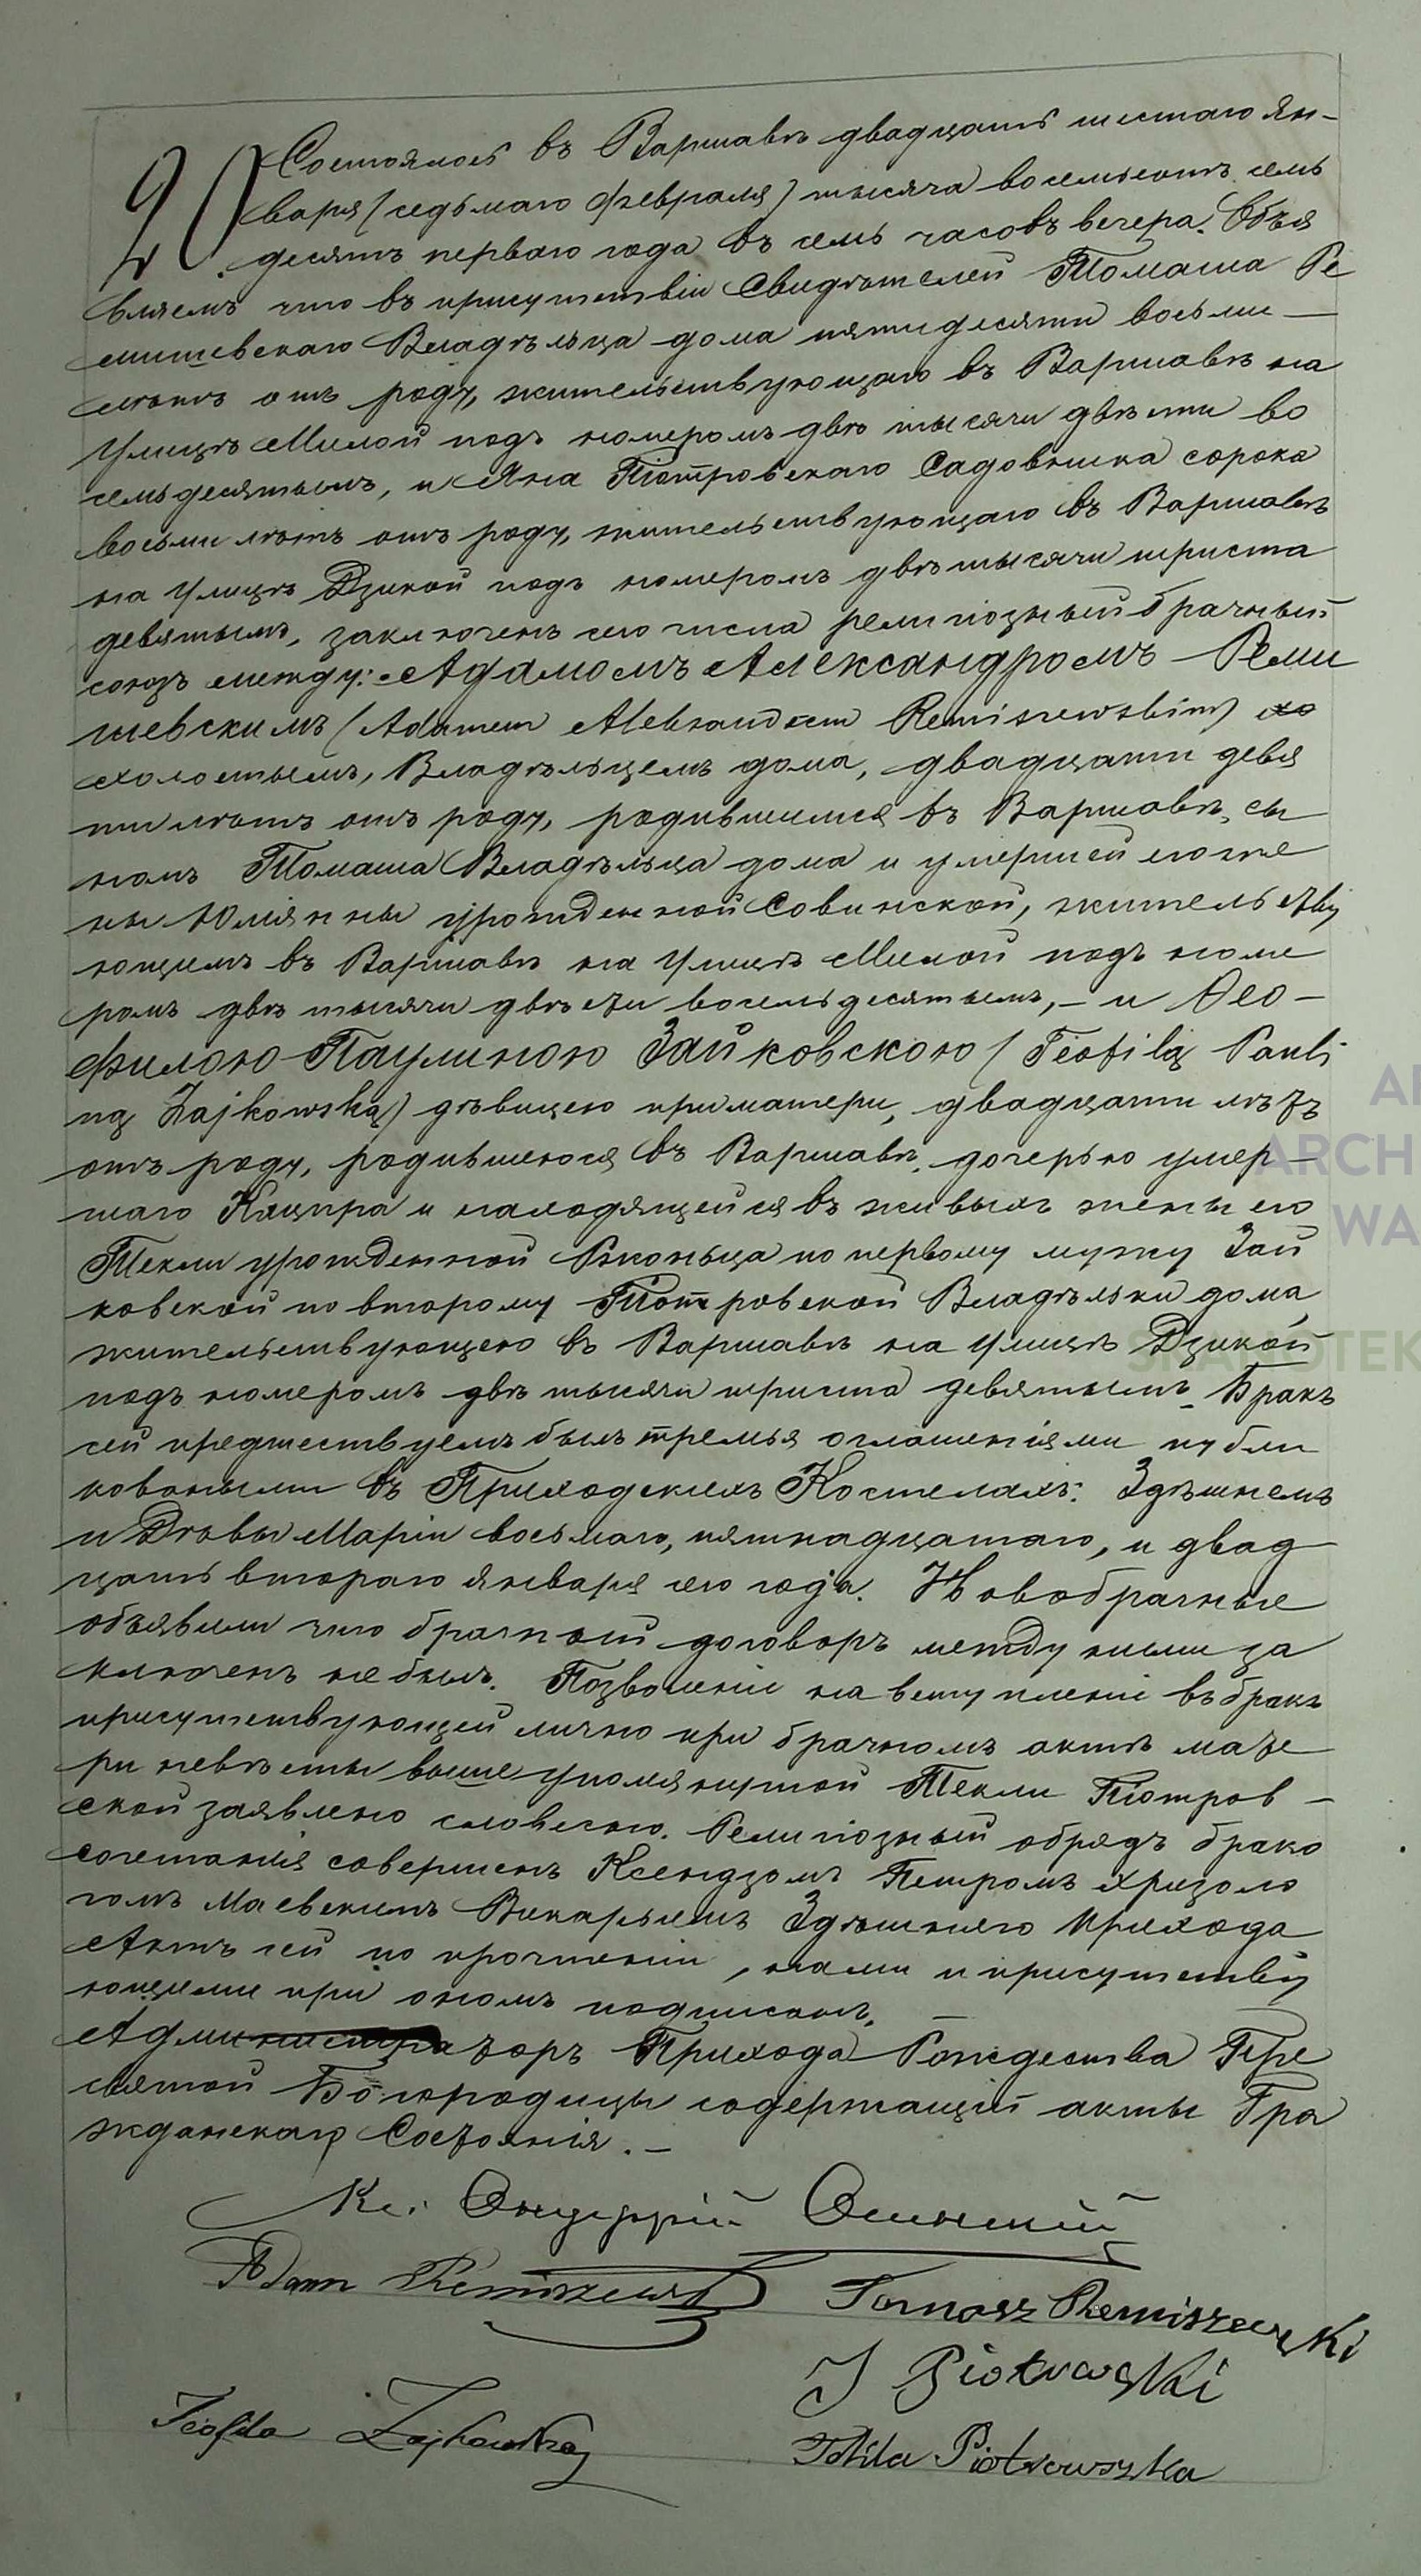 20. Состоялось въ Варшавѣ двадцать шестаго Ян-
варя (седьмаго Февраля) тысяча восемьсотъ семь
десятъ перваго года въ семь часовъ вечера. Объя
вляемъ что въ присутствіи Свидѣтелей Томаша Ре
мишевскаго Владѣльца дома пятидесяти восьми —
лѣтъ отъ роду, жительствующаго въ Варшавѣ на
Улицѣ Милой подъ номеромъ двѣ тысячи двѣсти во
семьдесятымъ, и Яна Піотровскаго Садовника сорока
восьми лѣтъ отъ роду, жительствующаго въ Варшавѣ
на Улицѣ Дзикой подъ номеромъ двѣ тысячи триста
девятымъ, заключенъ сего числа религіозный брачный
союзъ между: Адамомъ Александромъ Реми
шевскимъ (Adamem Aleksandrem Remiszewskim) хо
холостымъ, Владѣльцемъ дома, двадцати девя
ти лѣтъ отъ роду, родившимся въ Варшавѣ, сы
номъ Томаша Владѣльца дома и умершей его же
ны Юліянны урожденной Совинской, жительству
ющимъ въ Варшавѣ на Улицѣ Милой подъ номе
ромъ двѣ тысячи двѣсти восемьдесятымъ, – и Ѳео –
филою Паулиною Зайковскою (Teofilą Pauli
ną Zajkowską) дѣвицею при матери, двадцати лѣтъ
отъ роду, родившеюся въ Варшавѣ, дочерью умер –
шаго Кацпра и находящейся въ живыхъ жены его
Текли урожденной по первому мужу Зай
ковской по второму Піотровской Владѣльки дома
жительствующею въ Варшавѣ на Улицѣ Дзикой
подъ номеромъ двѣ тысячи триста девятымъ – Бракъ
сей предшествуемъ былъ тремья оглашеніями публи
коваными въ Приходскихъ Костелахъ: Здѣшнемъ
и Дѣвы Маріи восьмаго, пятнадцатаго, и двад
цать втораго января сего года. Новобрачные
объявили что брачной договоръ между ними за
ключенъ не былъ. Позволеніе на вступленіе въ бракъ
присутствующей лично при брачномъ актѣ мате
ри невѣсты выше упомянутой Текли Піотров –
ской заявлено словесно. Религіозный обрядъ брако
сочетанія совершенъ Ксендзомъ Петромъ Хризоло
гомъ Маевскимъ Викарьемъ Здѣшняго Прихода
Актъ сей по прочтеніи, нами и присутству
ющими при ономъ подписанъ. –
Администраторъ Прихода Рождества Пре
святой Богородицы содержащій акты Гра
жданскаго Состоянія. –
Кс. Онуфрій
Adam Remiszewski Tomasz Remiszewski
J Piotrowski
Teofila Zajkowska Piotrowszka